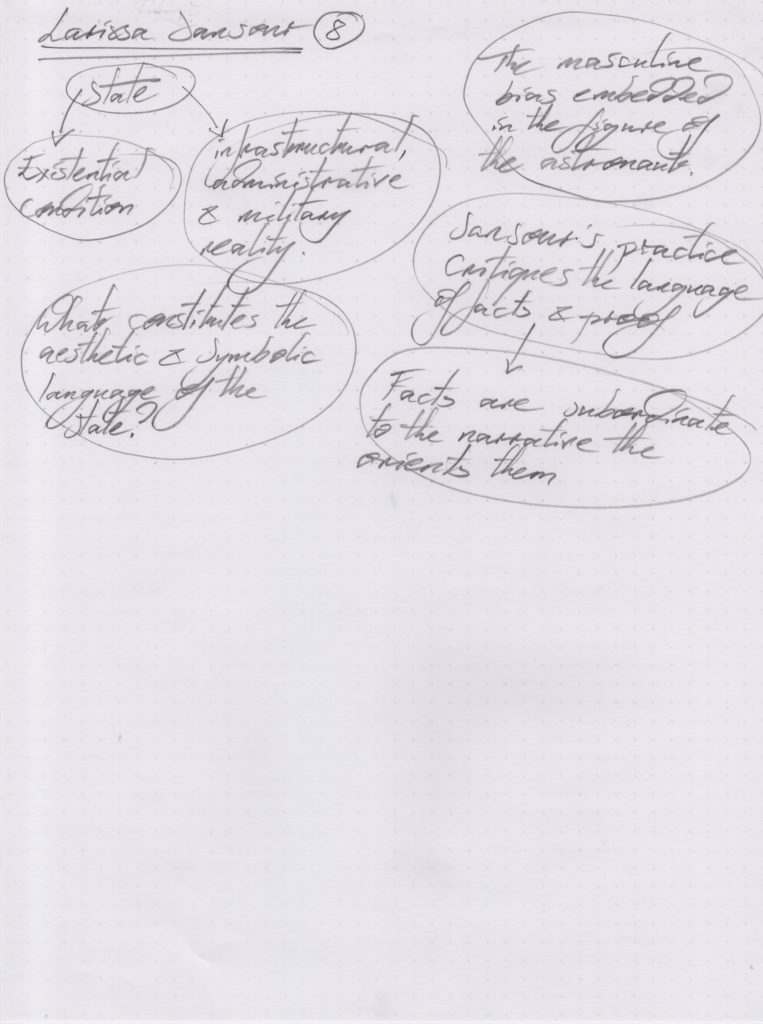 Larissa Sansour 8
State
Existential
condition
infrastructural,
administrative
& military
reality.
What constitutes the
aesthetic & symbolic
language of the
state?
The masculine
bias embedded
in the figure of
the astronaut.
Sansour's practice
critiques the language
of facts & proof
Facts are subordinate
to the narrative the
orients them